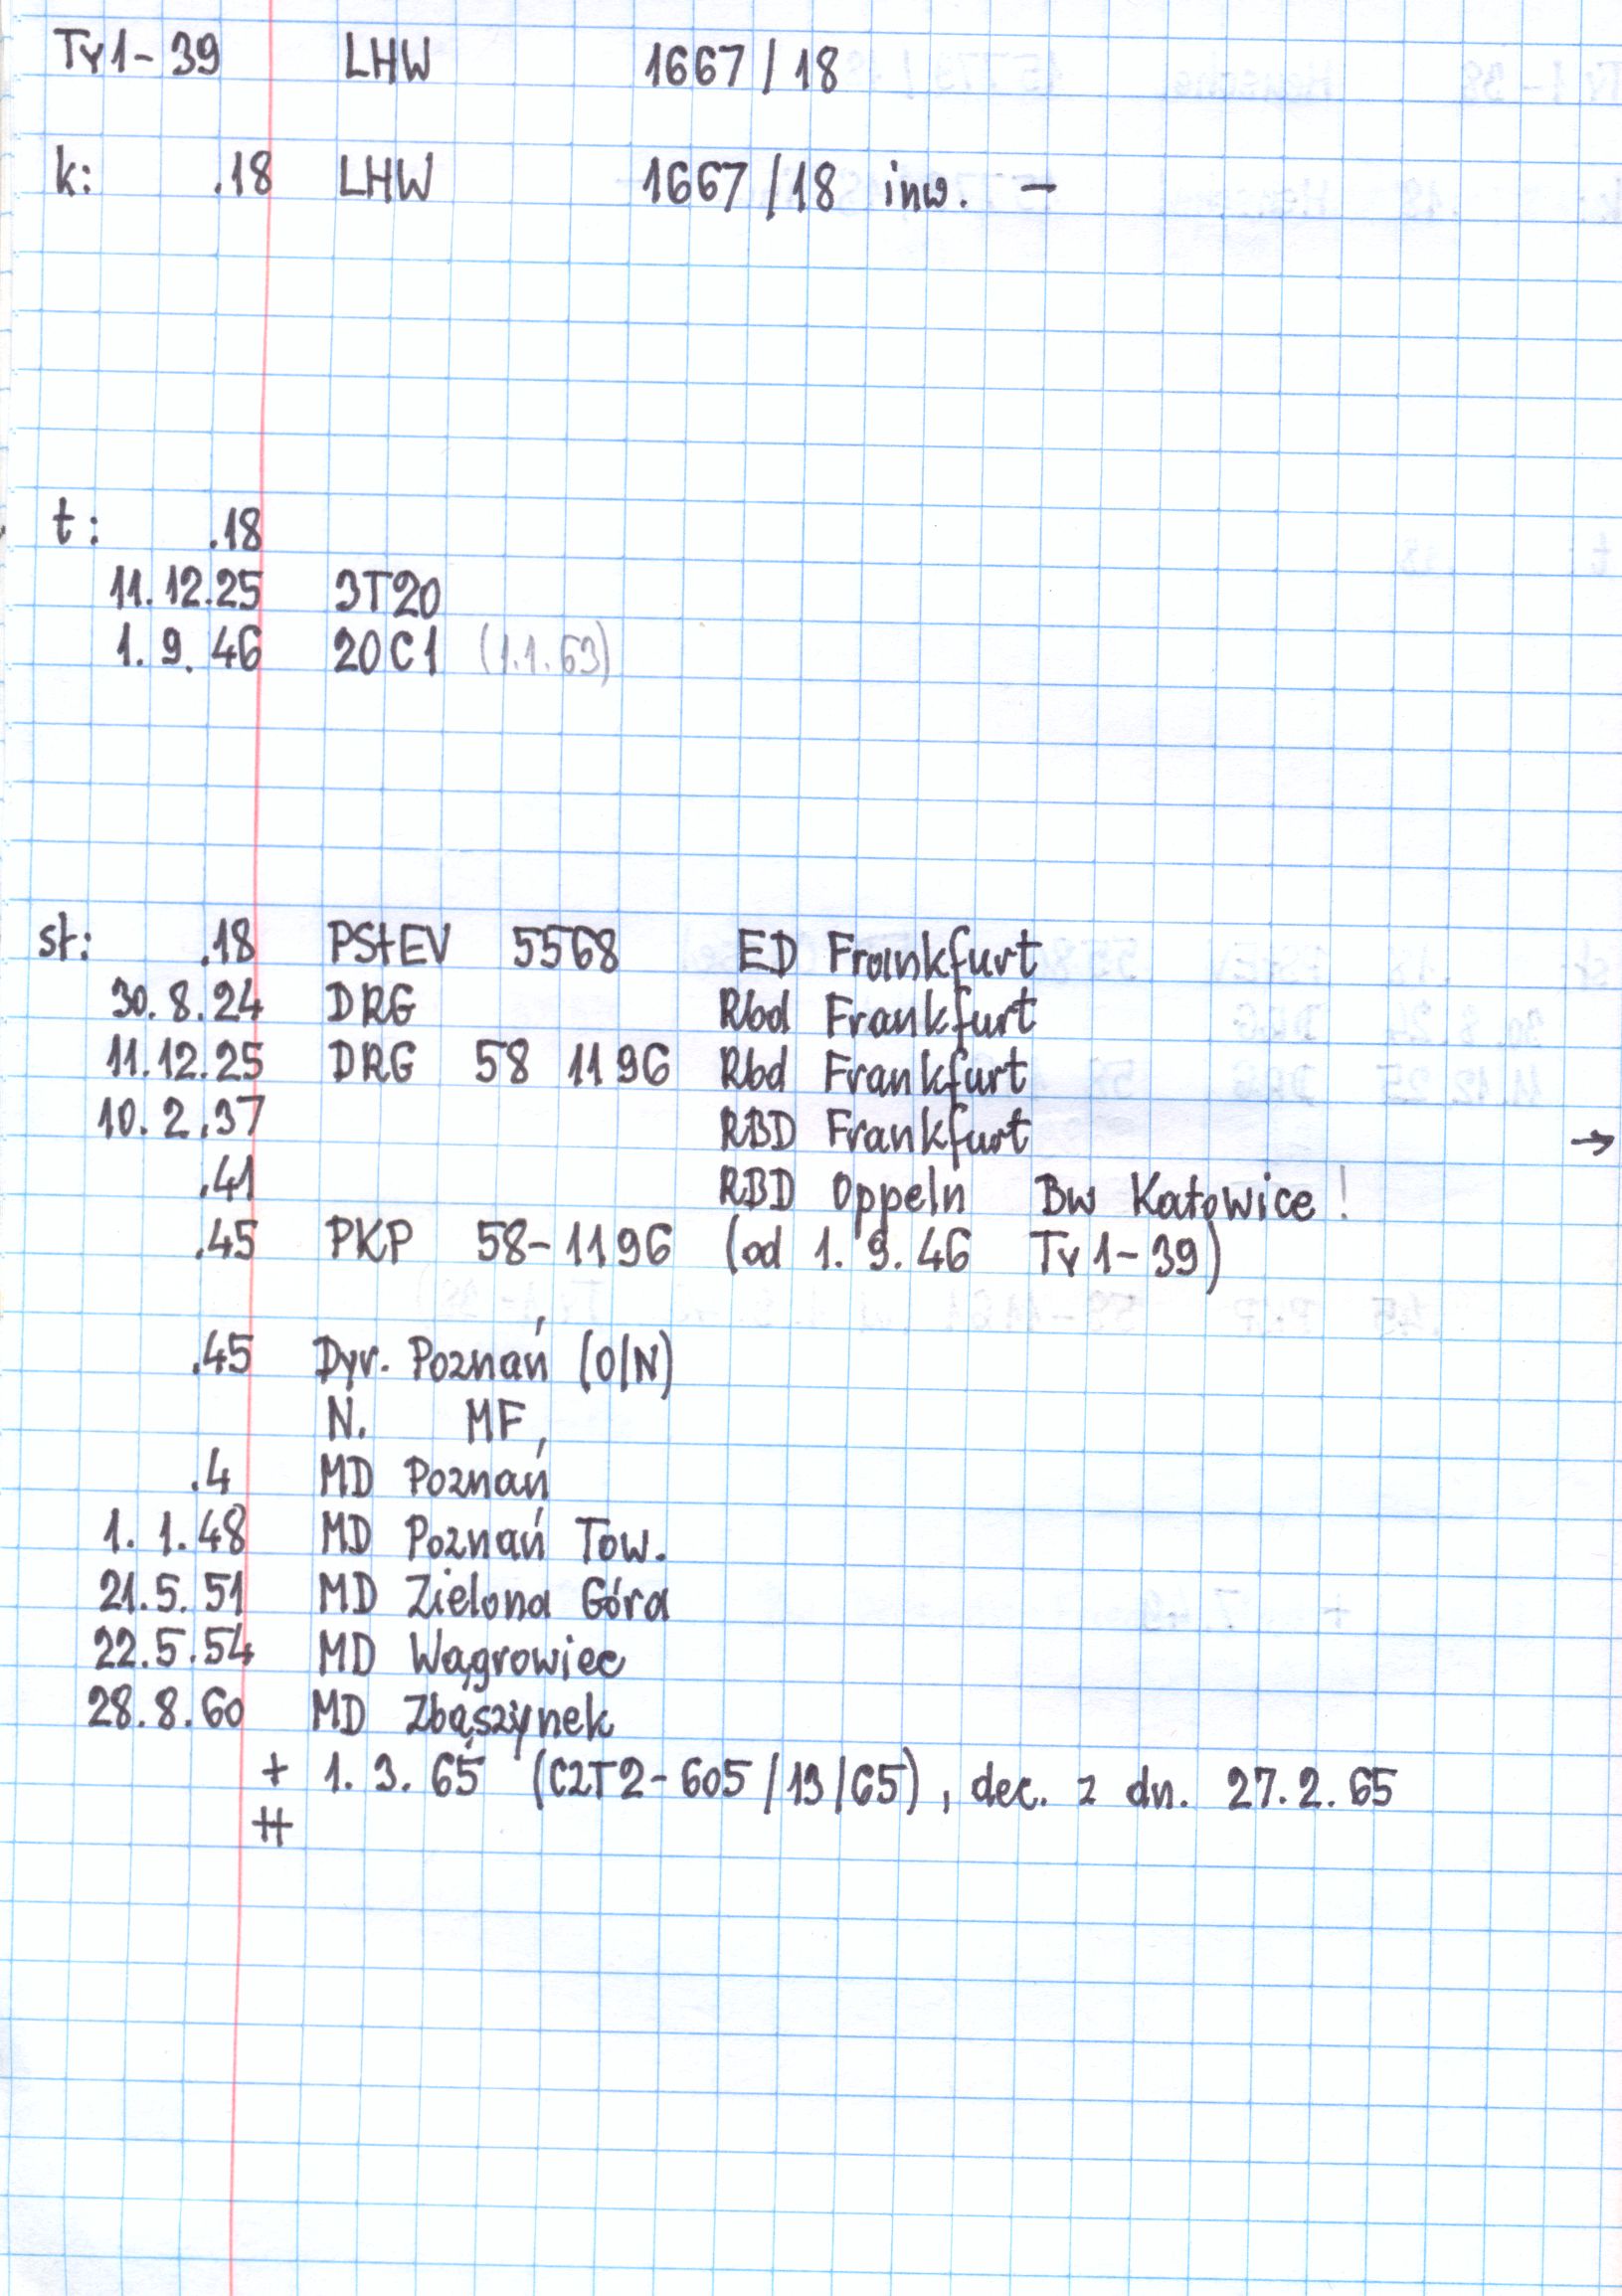 Ty1-39 LHW 1667/18
k: .18 LHW 1667/18 inw. –
t: .18
11.12.25 3T20
1.9.46 20C1 (1.1.63)
st: .18 PStEV 5568 ED Frankfurt
30.8.24 DRG Rbd Frankfurt
11.12.25 DRG 58 1196 Rbd Frankfurt
10.2.37 RBD Frankfurt →
.41 RBD Oppeln Bw Katowice!
.45 PKP 58-1196 (od 1.9.46 Ty1-39)
.45 Dyr. Poznań (O/N)
N. MF
.4 MD Poznań
1.1.48 MD Poznań Tow.
21.5.51 MD Zielona Góra
22.5.54 MD Wągrowiec
28.8.60 MD Zbąszynek
+ 1.3.65 (C2T2-605/13/65), dec. z dn. 27.2.65
++